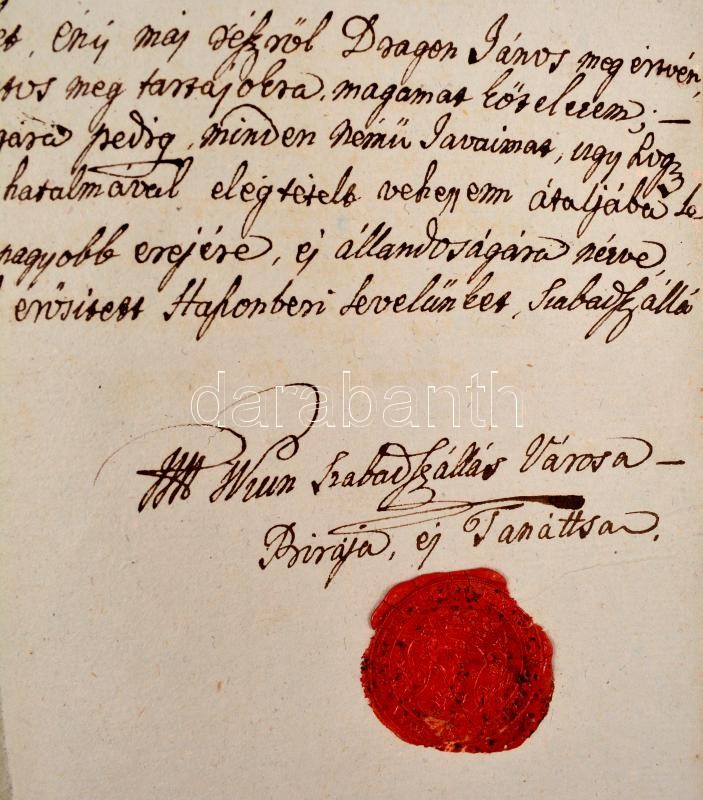 és máj részről Dragon János meg értvén
tos meg tartásokra, magamat kötelezem; —
gára pedig, minden némü Javaimat, ugy hogy
hatalmával elégtételt vehessenn átaljába le-
nagyobb erejére, és állandoságára nézve,
erősitett Haszonbéri Levelünket, Szabadszállá
darabanth
Szabadszállás Városa —
Birája, és Tanáttsa.